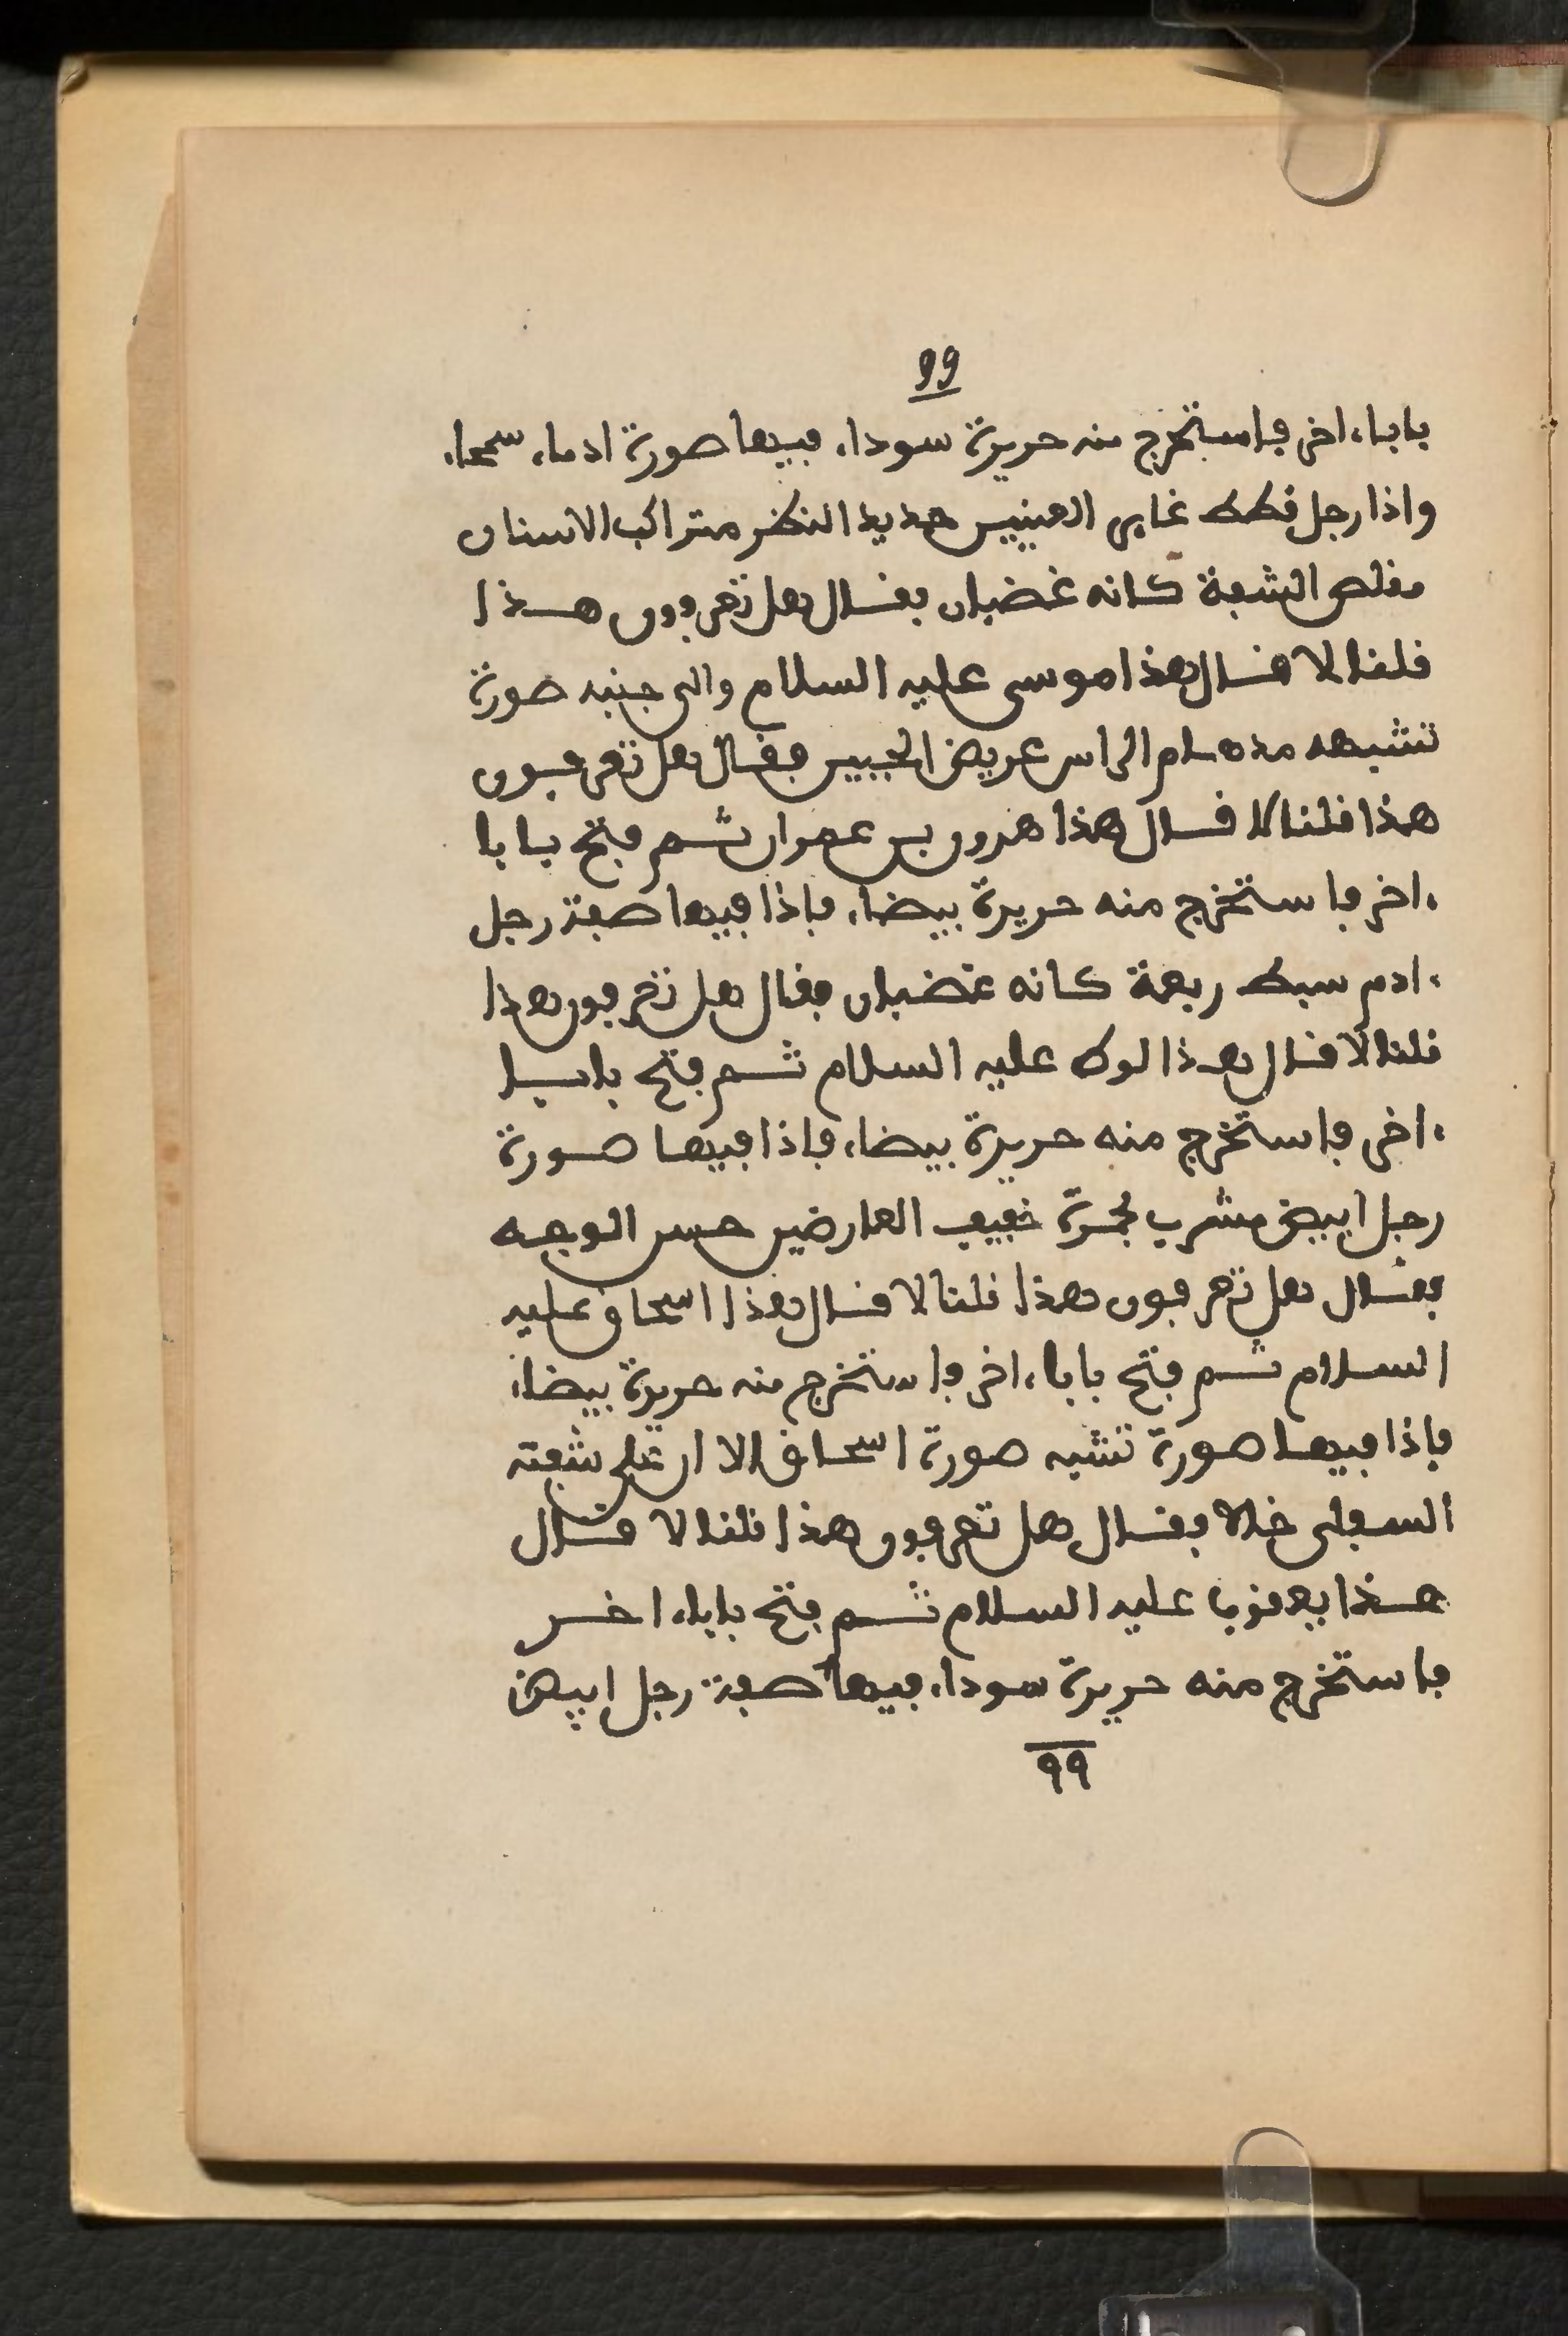 99
بابا ءاخر فاستخرج منه حريرة سوداء فيها صورة ادماء سحماء
واذا رجل قطط غاير العينين حديد النظر متراكب الاسنان
مقلص الشفة كانه غضبان فقال هل تعرفون هذا
قلنا لا قال هذا موسى عليه السلام والى جنبه صورة
تشبهه مدهام الراس عريض الجبين فقال هل تعرفون
هذا قلنا لا قال هذا هرون بن عمران ثم فتح بابا
ءاخر فاستخرج منه حريرة بيضاء فاذا فيها صفة رجل
ءادم سبط ربعة كانه غضبان فقال هل تعرفون هذا
قلنا لا قال هذا لوط عليه السلام ثم فتح بابا
ءاخر فاستخرج منه حريرة بيضاء فاذا فيها صورة
رجل ابيض مشرب بحمرة خفيف العارضين حسن الوجه
فقال هل تعرفون هذا قلنا لا قال هذا اسحاق عليه
السلام ثم فتح بابا ءاخر فاستخرج منه حريرة بيضاء
فاذا فيها صورة تشبه صورة اسحاق الا ان على شفته
السفلى خالا فقال هل تعرفون هذا قلنا لا قال
هذا يعقوب عليه السلام ثم فتح بابا ءاخر
فاستخرج منه حريرة سوداء فيها صفة رجل ابيض
٩٩